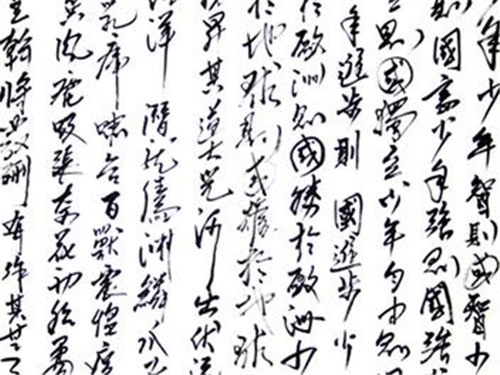 年少年智則國智少
則國富少年強則國強
則國獨立少年自由則
年進步則國進步少
於歐洲則國勝於歐洲少
於地球則國雄於地球
昇其道大光河出伏流
洋潛龍騰淵鱗爪飛
乳虎嘯谷百獸震惶
風塵吸張奇花初胎矞
幹將發硎有作其芒